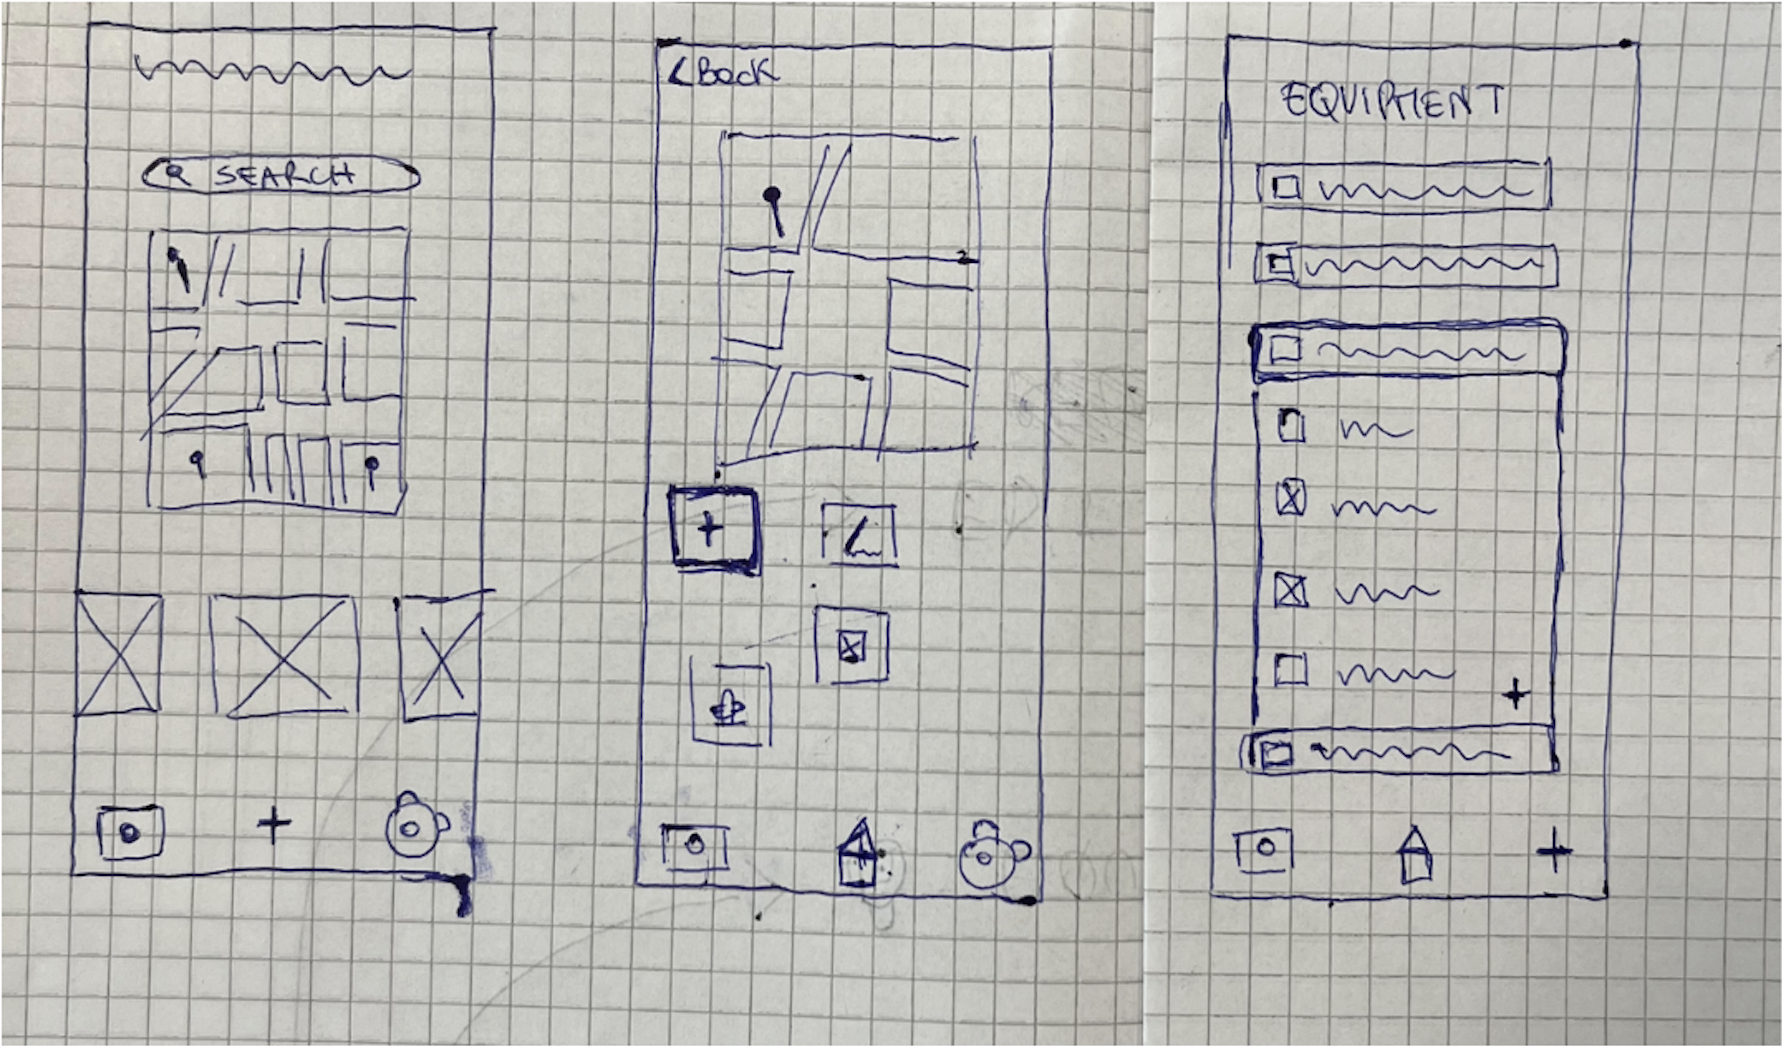 SEARCH
< Back
EQUIPMENT